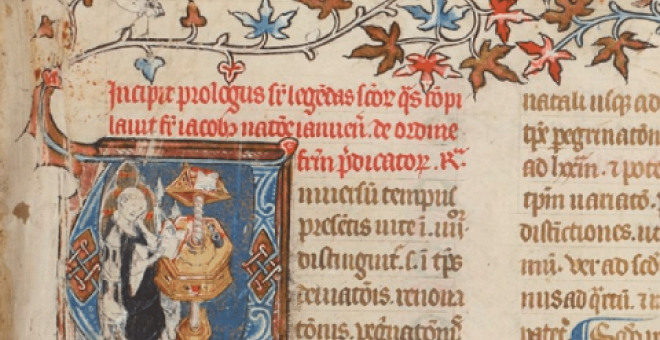 Incipit prologus sr̄ legēdas scōr q̄s cōpi
lauit fr̄ iacobꝰ natōe ianuen̄. de ordine
frm̄ p̄dicatoꝝ. Rᵃ.
niuersū tempus
presētis uite ī. iiiiᵒʳ
distinguit̄. s. ī tp̄s
deuiatōis. renoua
tōnis. reg̃natōnis̄
natali usqꝫ ad
tp̄s peregrinatōn
ad lxxiii. ⁊ pote
tpm̄ uariatō.
distīctiones. ut
mū. ver ad scō
nus ad q̄rtū. ⁊ r
patet̄ Scd̄o